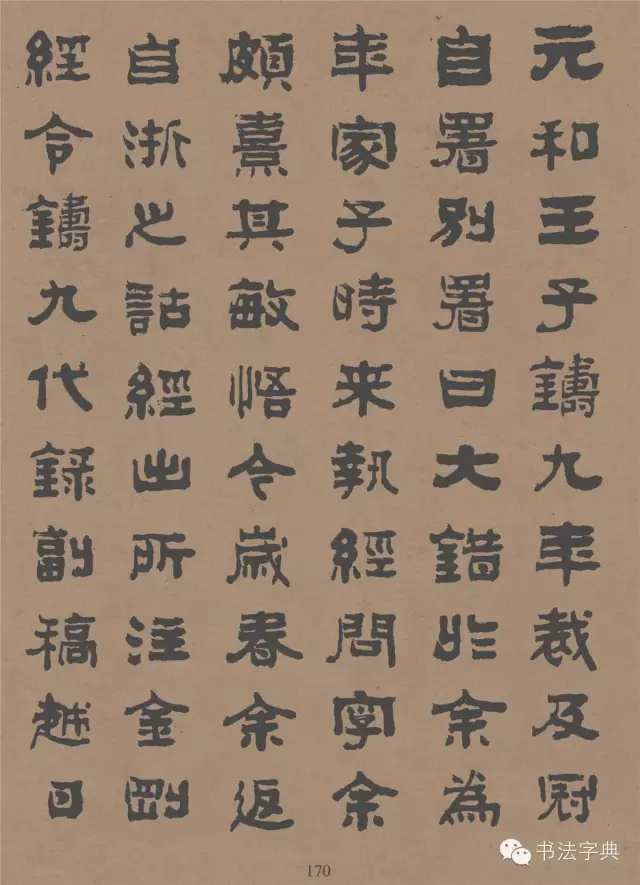 元和王子鑄九年裁及冠
自署別署曰大錯於余為
年家子時来執經問字余
頗熹其敏悟今歲春余返
自浙之詁經出所注金剛
經令鑄九代録副稿越日
170
书法字典